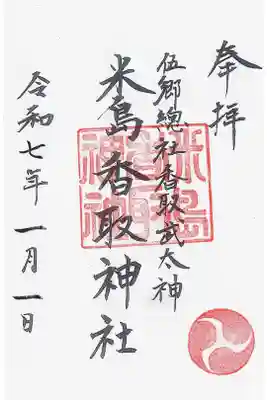 奉拝
伍郷總社香取武太神
米島香取神社
令和七年一月一日